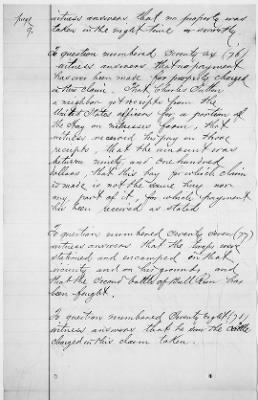 page
9.
witness answers that no property was
taken in the night time or secretly
To question numbered Seventy six (76)
witness answers that no payment
has ever been made for property charged
in this claim. That Charles
a neighbor got receipts from the
United States officers for a portion of
the hay on witnesses farm, that
witness received the pay on those
receipts, that the amount was
between ninety and one hundred
dollars, that this hay for which claim
is made is not the same hay nor
any part of it, for which payment
has been received as stated
To question numbered Seventy Seven (77)
witness answers that the troops were
stationed and encamped in that
vicinity and on his grounds and
that the second battle of Bull Run has
been fought.
To question numbered Seventy Eight (78)
witness answers that he saw the cattle
charged in this claim taken.